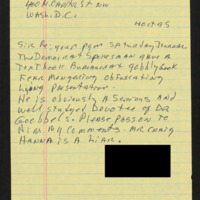 400 N. Capitol St NW
Wash. D.C.
Sir Re: your pgm Saturday
The Democrat Spokesman gave a
Text Book Bureaucrat gobblybook
Fear Mongering obfuscating
Lying Presentation.
He is obviously a serious and
well studyed Devotee of DR
Goebbels. Please Pass on To
Him my comments. Mr Craig
Hanna is a Liar.